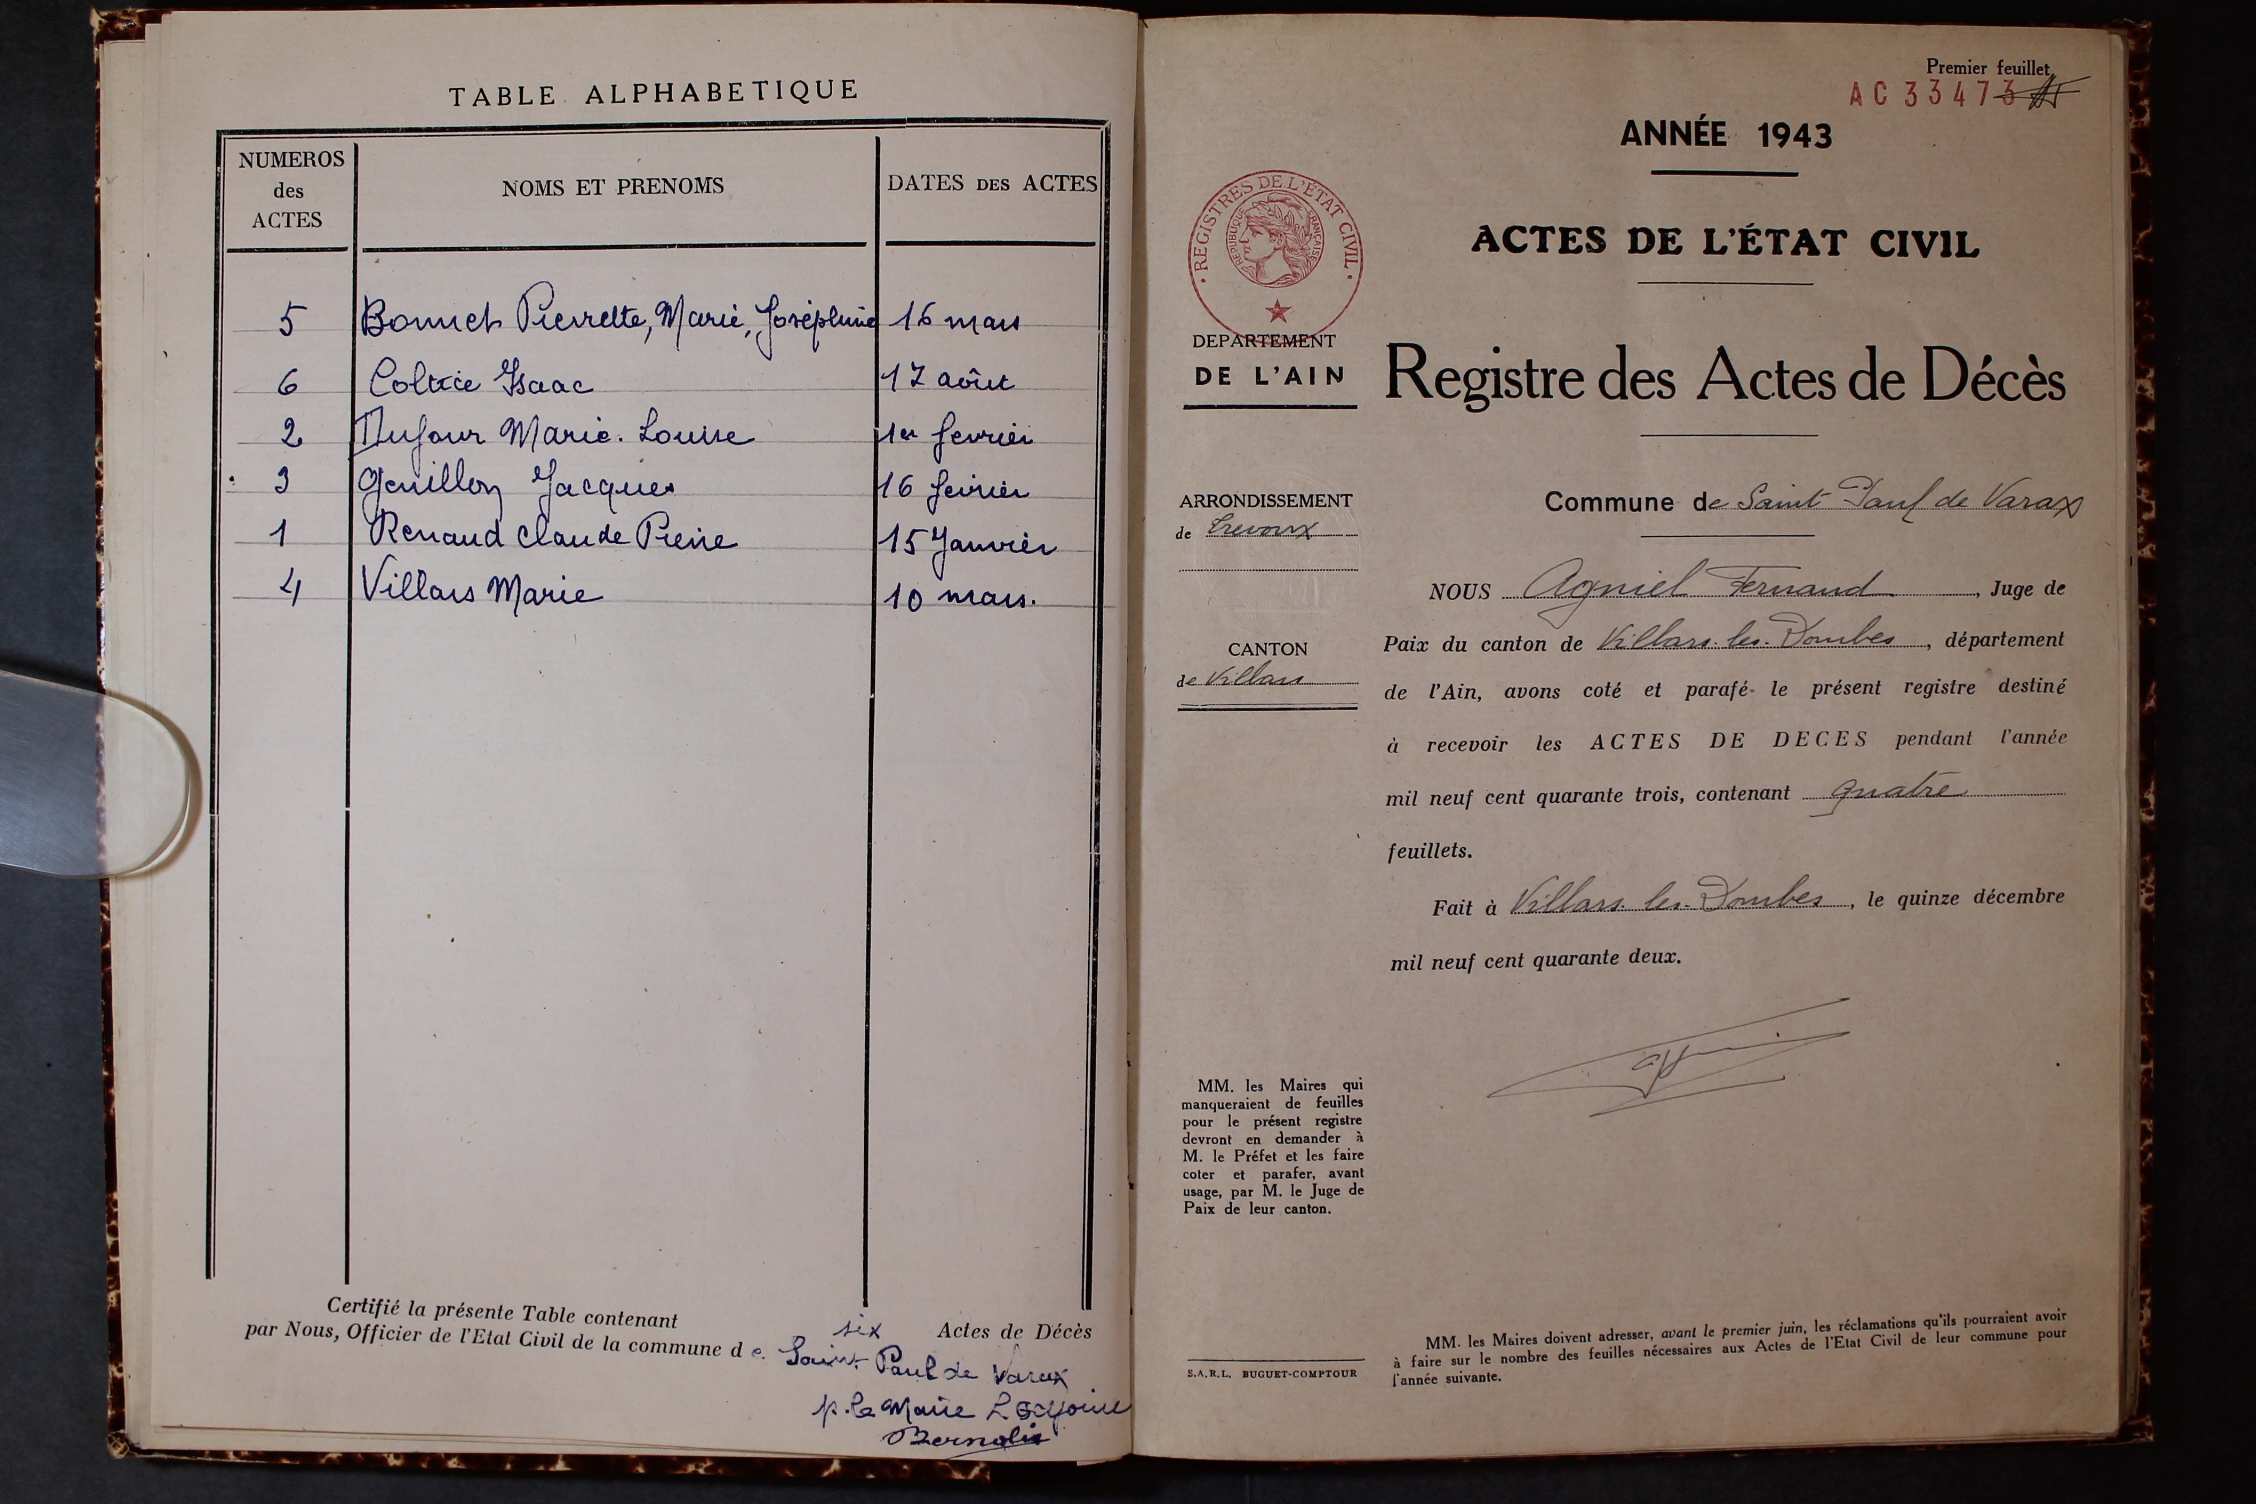 TABLE ALPHABETIQUE
NUMEROS des ACTES
NOMS ET PRENOMS
DATES DES ACTES
5 Bonnet Pierrette, Marie, Joséphine 16 mars
6 Isaac 17 août
2 Dufour Marie. Louise 1er fevrier
3 Genillon Jacques 16 fevrier
1 Renaud Claude Pierre 15 Janvier
4 Villars Marie 10 mars.
Certifié la présente Table contenant six Actes de Décès
par Nous, Officier de l'Etat Civil de la commune de Saint Paul de Varax
p. le Maire L'adjoint
Premier feuillet
AC 33473
ANNÉE 1943
ACTES DE L'ÉTAT CIVIL
REGISTRES DE L'ÉTAT CIVIL
RÉPUBLIQUE FRANÇAISE
DEPARTEMENT
DE L'AIN
Registre des Actes de Décès
ARRONDISSEMENT
de Trevoux
Commune de Saint Paul de Varax
CANTON
de Villars
NOUS Agniel Fernand, Juge de
Paix du canton de Villars-les-Dombes, département
de l'Ain, avons coté et parafé le présent registre destiné
à recevoir les ACTES DE DECES pendant l'année
mil neuf cent quarante trois, contenant quatre
feuillets.
Fait à Villars-les-Dombes, le quinze décembre
mil neuf cent quarante deux.
MM. les Maires qui
manqueraient de feuilles
pour le présent registre
devront en demander à
M. le Préfet et les faire
coter et parafer, avant
usage, par M. le Juge de
Paix de leur canton.
S.A.R.L. BUGUET-COMPTOUR
MM. les Maires doivent adresser, avant le premier juin, les réclamations qu'ils pourraient avoir
à faire sur le nombre des feuilles nécessaires aux Actes de l'Etat Civil de leur commune pour
l'année suivante.